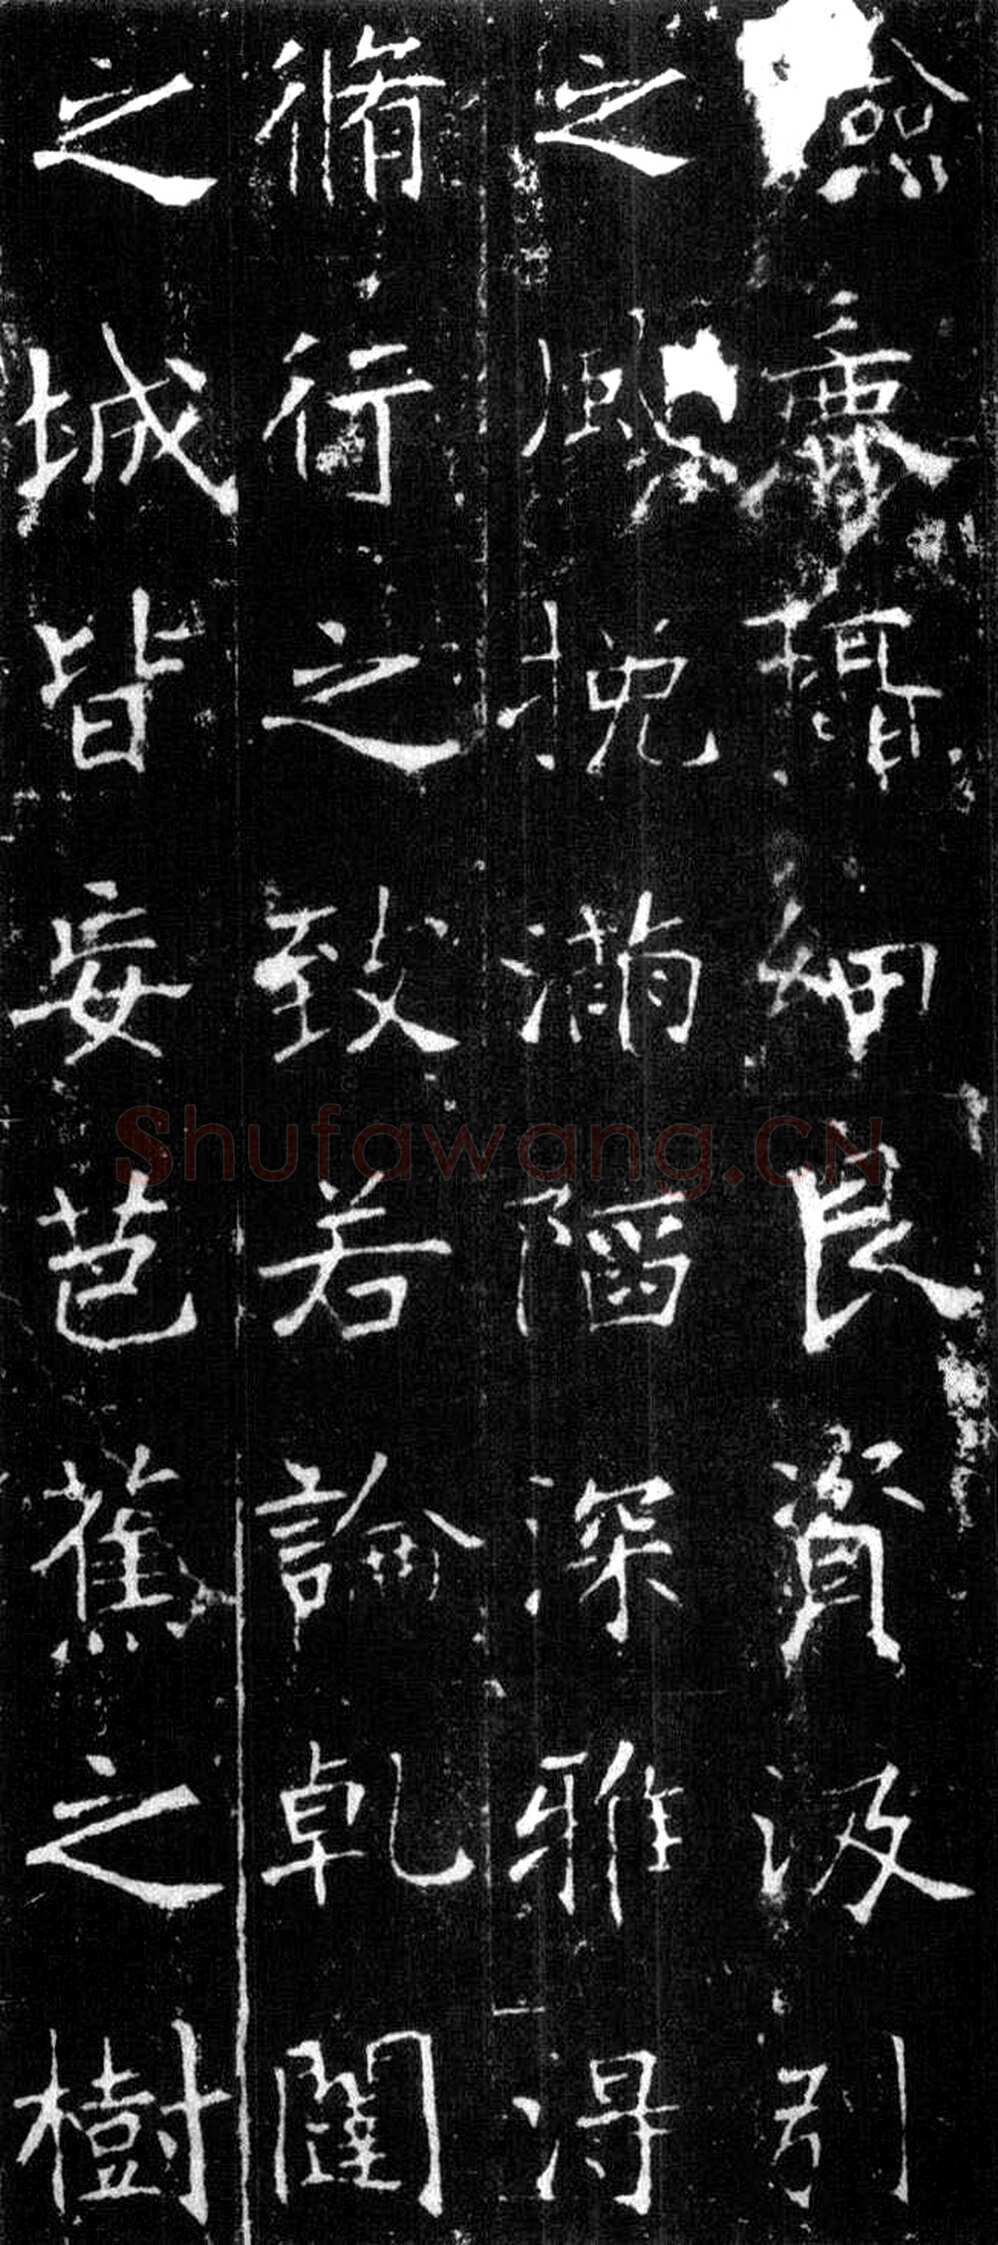 細良資汲引
之挽滿陷深雅得
脩行之致若論乾闥
之城皆妄芭蕉之樹
Shufawang.CN